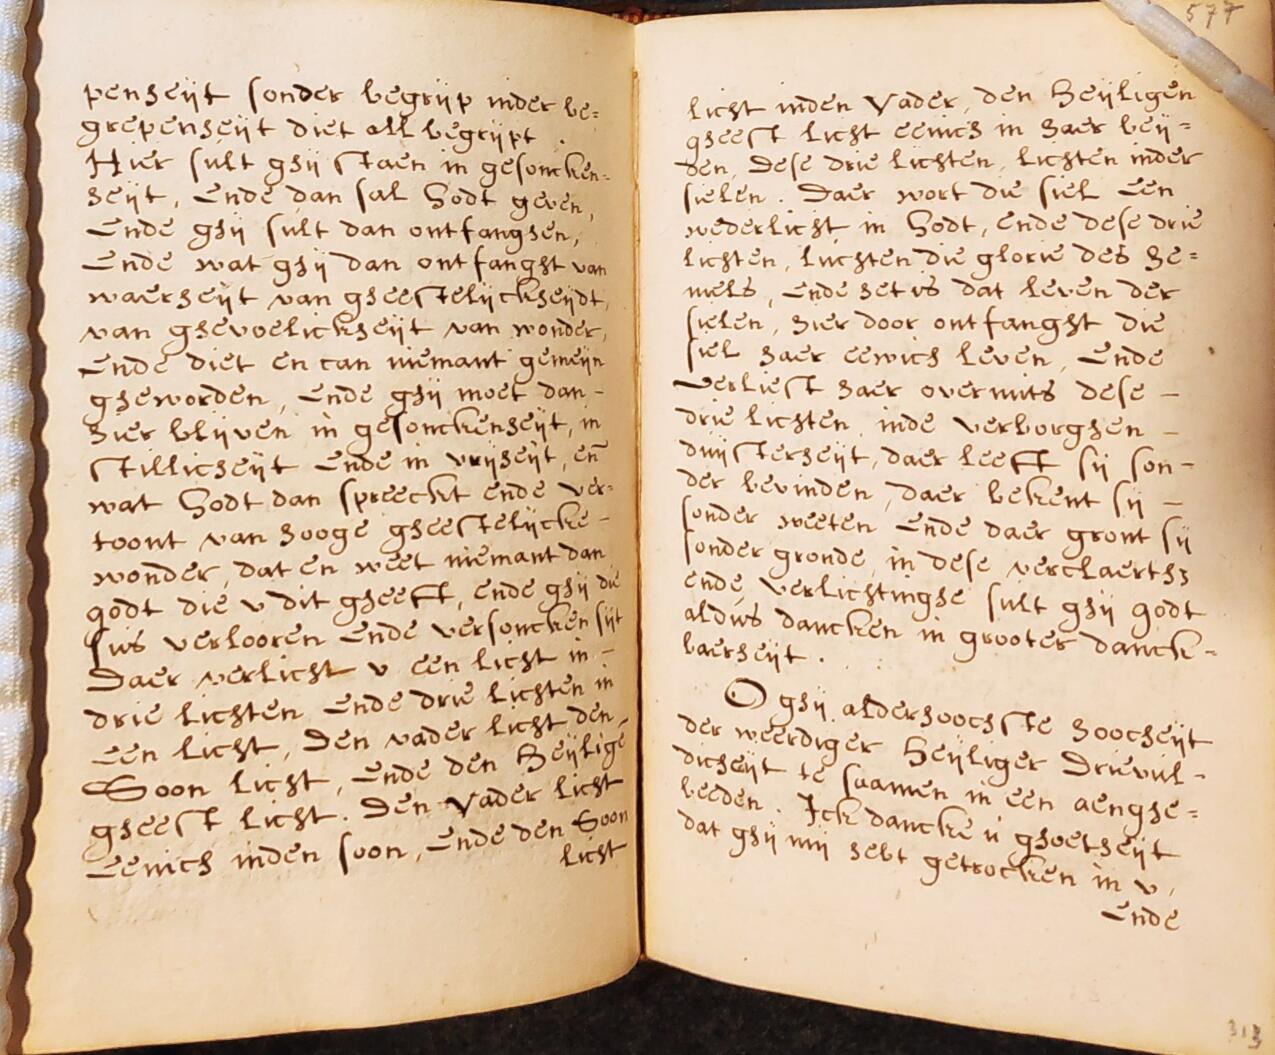 penheijt sonder begrijp inder be=
grepenheijt diet all begrijpt .
Hier sult ghij staen in gesoncken=
heijt, Ende dan sal Godt geven,
Ende ghij sult dan ontfanghen,
Ende wat ghij dan ontfanght van
waerheijt van gheestelijckheijdt,
van ghevoelickheijt van wonder,
Ende diet en can niemant gemeijn
gheworden, Ende ghij moet dan -
hier blijven in gesonckenheijt, in
stillicheijt Ende in vrijheijt, en̄
wat Godt dan spreeckt ende ver=
toont van hooge gheestelijcke -
wonder, dat en weet niemant dan
godt die v dit gheeft, ende ghij die
sus verlooren Ende versoncken sijt
Daer verlicht v een licht in -
drie lichten Ende drie lichten in
Een licht, Den vader licht den,
Soon licht, Ende den Heijlige
gheest licht. Den Vader licht
Eenich inden soon, Ende den Soon
licht
577
licht inden Vader, den Heijligen
gheest licht eenich in haer beij=
den, Dese drie lichten, lichten inder
sielen. Daer wort die siel Een
wederlicht in Godt, Ende dese drie
lichten, luchten die glorie des he=
mels, Ende het is dat leven der
sielen, hier door ontfanght die
siel haer eewich leven, Ende
verliest haer overmits dese -
drie lichten inde verborghen -
duijsterheijt, daer leeft sij son-
der bevinden, daer bekent sij -
sonder weeten Ende daer gront sij
sonder gronde, in dese
ende, verlichtinghe sult ghij godt
aldus dancken in grooter danck-
baerheijt .
O ghij alderhoochste hoocheijt
der weerdiger Heijliger Drievul-
dicheijt te saamen in een aenghe=
beeden. Ick dancke u ghoetheijt
dat ghij mij hebt getrocken in v,
Ende
313